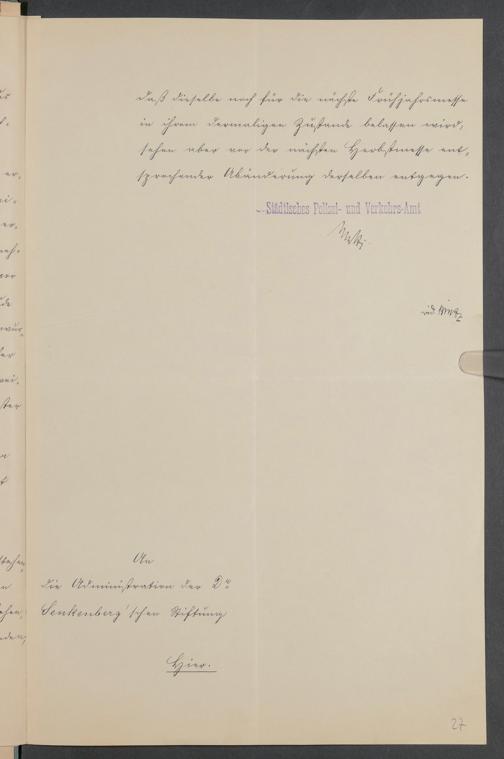 daß dieselbe noch für die nächste Frühjahrsmesse
in ihrem dermaligen Zustande belassen wird,
sehen aber vor der nächsten Herbstmesse ent-
sprechender Abänderung derselben entgegen.
Städtisches Polizei- und Verkehrs-Amt
An
die Administration der Dr.
Senkenberg'schen Stiftung
Hier.
27